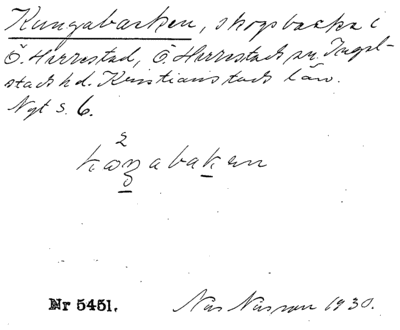 Kungabacken, skogsbacke i
Ö. Herrestad, Ö. Herrestads sn. Ingel-
stads hd. Kristianstads län.
Nyt s. 6.
2
kaŋabakan
Nr 5451.
1930.